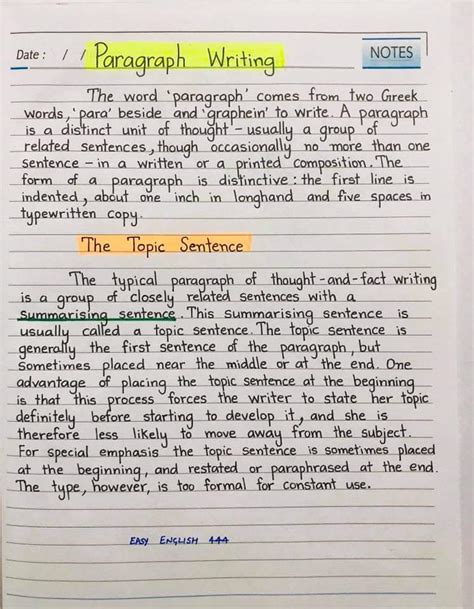 Date : / / Paragraph Writing NOTES
The word 'paragraph' comes from two Greek
words, 'para' beside and 'graphein' to write. A paragraph
is a distinct unit of thought - usually a group of
related sentences, though occasionally no more than one
sentence - in a written or a printed composition. The
form of a paragraph is distinctive : the first line is
indented, about one inch in longhand and five spaces in
typewritten copy.
The Topic Sentence
The typical paragraph of thought-and-fact writing
is a group of closely related sentences with a
summarising sentence. This summarising sentence is
usually called a topic sentence. The topic sentence is
generally the first sentence of the paragraph, but
sometimes placed near the middle or at the end. One
advantage of placing the topic sentence at the beginning
is that this process forces the writer to state her topic
definitely before starting to develop it, and she is
therefore less likely to move away from the subject.
For special emphasis the topic sentence is sometimes placed
at the beginning, and restated or paraphrased at the end.
The type, however, is too formal for constant use.
EASY ENGLISH 444